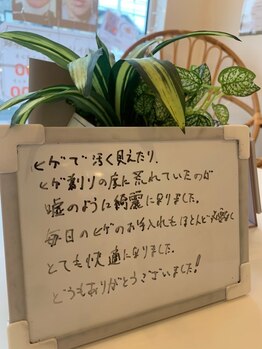 ヒゲで汚く見えたり、
ヒゲ剃りの度に荒れていたのが
嘘のように綺麗になりました。
毎日のヒゲのお手入れもほとんど必要なく
とても快適になりました。
どうもありがとうございました!